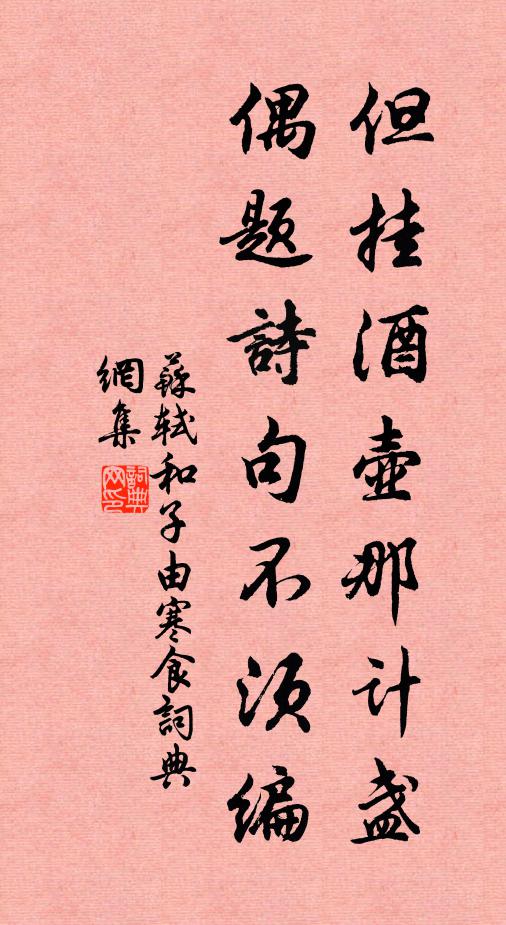 但挂酒壺那计盏
偶题詩句不须编
蘇軾和子由寒食詞典
網集
詞典